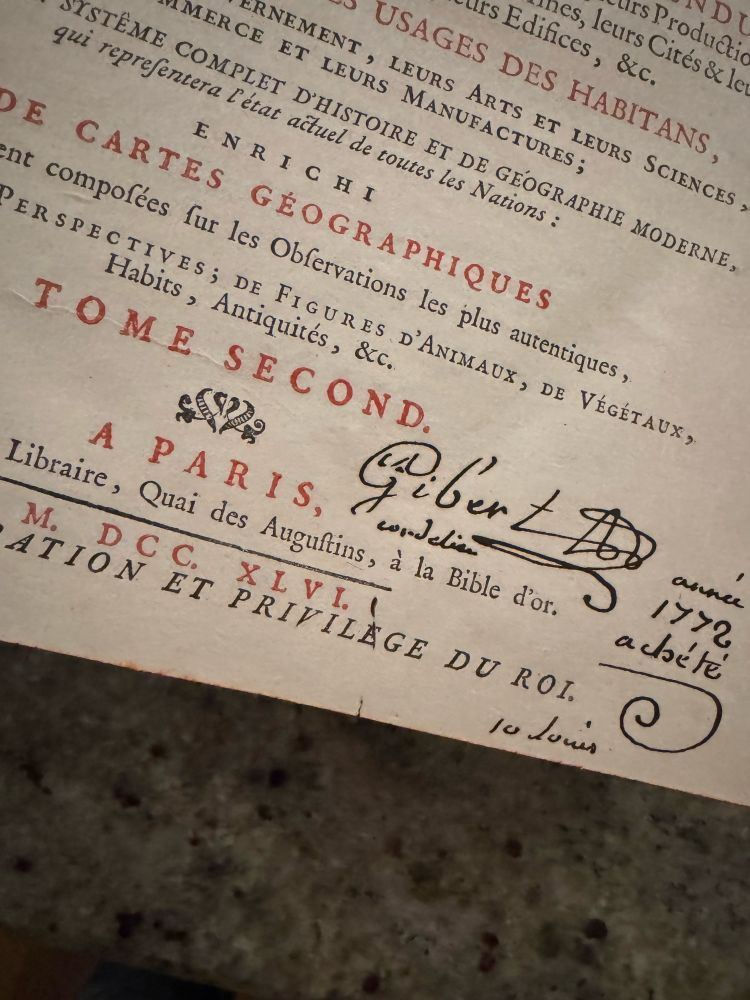 leurs Productio
leurs Cités & leu
leurs Edifices, &c.
USAGES DES HABITANS,
VERNEMENT, LEURS ARTS ET LEURS SCIENCES,
MMERCE ET LEURS MANUFACTURES;
SYSTÊME COMPLET D'HISTOIRE ET DE GÉOGRAPHIE MODERNE,
qui repreſentera l'état actuel de toutes les Nations:
ENRICHI
DE CARTES GÉOGRAPHIQUES
ent compoſées ſur les Obſervations les plus autentiques,
PERSPECTIVES; DE FIGURES D'ANIMAUX, DE VÉGÉTAUX,
Habits, Antiquités, &c.
TOME SECOND.
A PARIS,
Gibert
cordelier
Libraire, Quai des Auguſtins, à la Bible d'or.
M. DCC. XLVI.
ATION ET PRIVILÈGE DU ROI.
année
1772
acheté
10 Louis